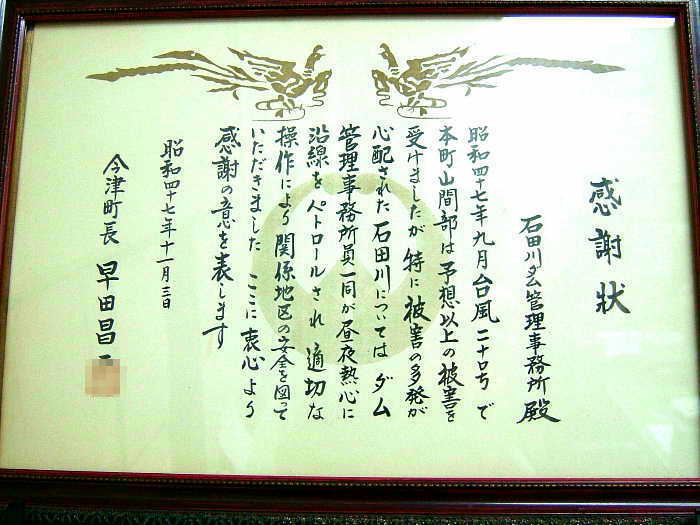 感謝状
石田川ダム管理事務所殿
昭和四十七年九月台風二十口号で
本町山間部は予想以上の被害を
受けましたが特に被害の多発が
心配された石田川については ダム
管理事務所員一同が昼夜熱心に
沿線をパトロールされ 適切な
操作により関係地区の安全を図って
いただきました ここに衷心より
感謝の意を表します
昭和四十七年十一月三日
今津町長 早田昌